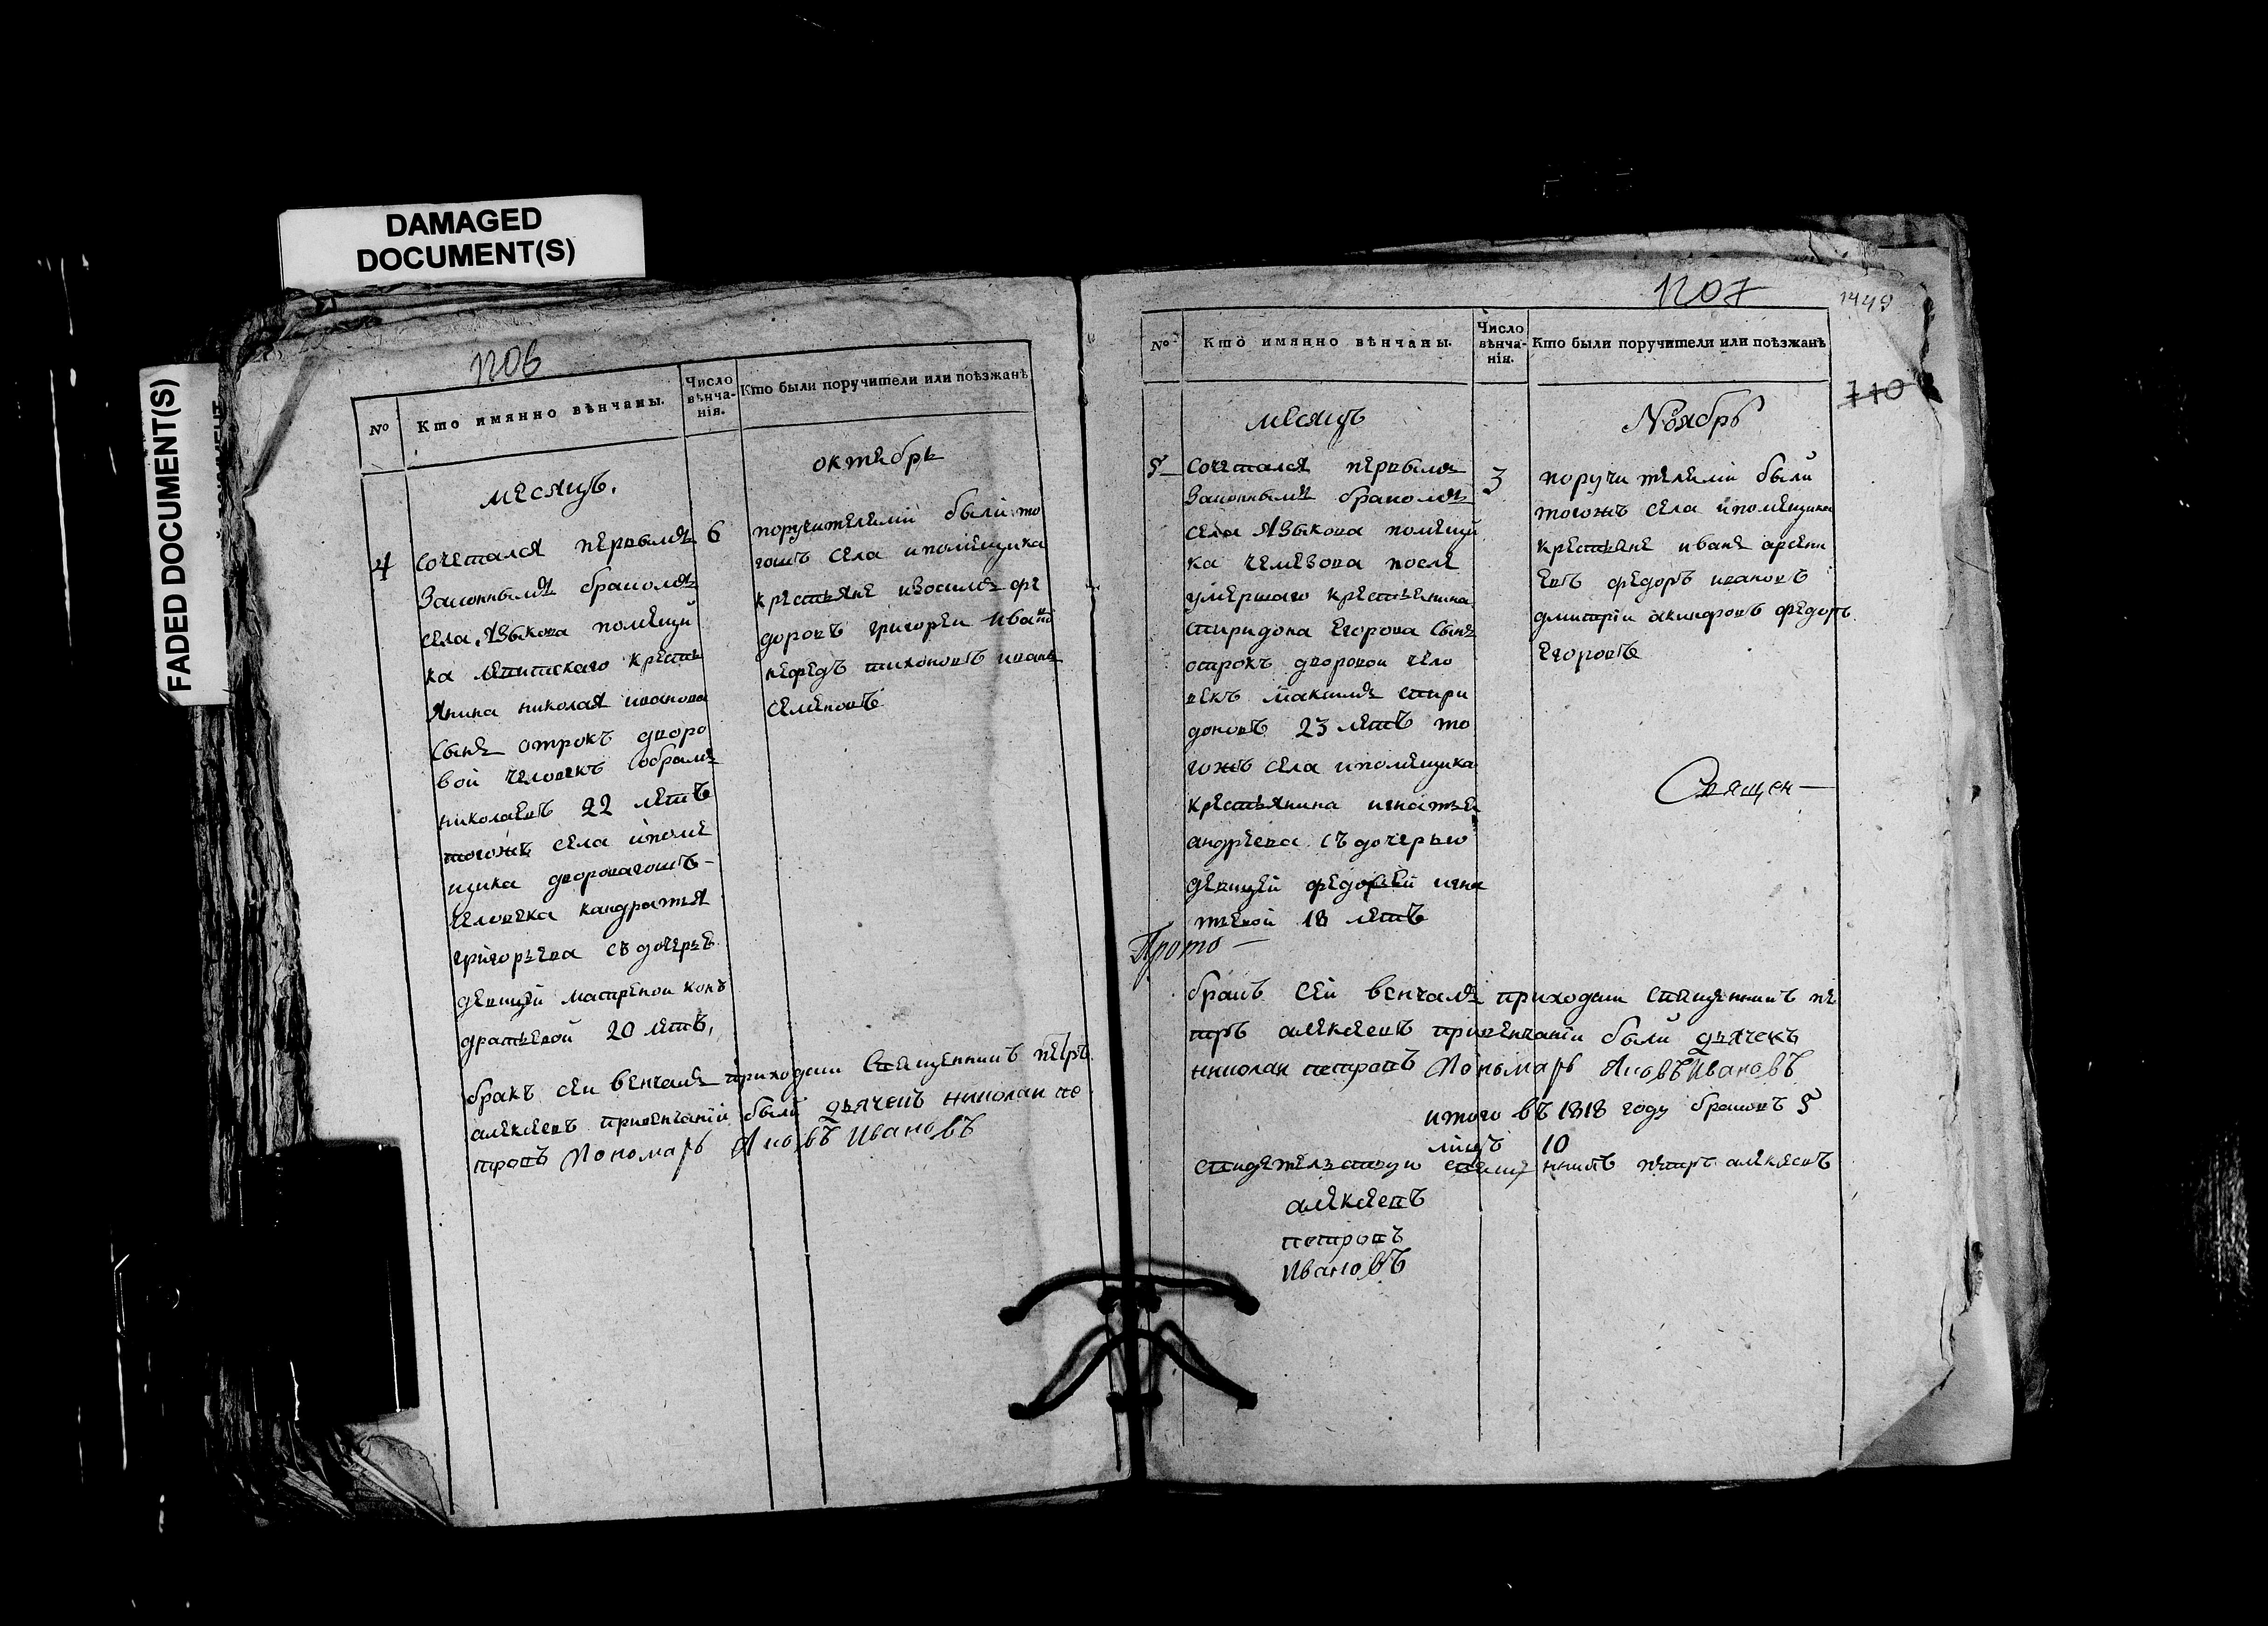 DAMAGED
DOCUMENT(S)
FADED DOCUMENT(S)
1206
№
Кто имянно вѣнчаны.
Число вѣнча-нія.
Кто были поручители или поѣзжанѣ
месяцъ.
октебрь
4
сочетался первымъ
законнымъ бракомъ
села Языкова помещи
ка крестъ
янина николая иванова
сынъ отрокъ дворо
вой человекъ
николаевъ 22 летъ
тогожъ села ипоме
щика
человека кандратья
григорьева съ дочерью
девицей матреной кон
дратьевой 20 летъ,
6
поручителеми были то
гожъ села ипомещика
крестьяне фе
доровъ григореи ивано
нефедъ тихоновъ иванъ
семеновъ
бракъ сеи венчалъ приходски священникъ петръ
алексеевъ привенчании были дьячекъ николаи пе
тровъ Пономарь Яковъ Ивановъ
1207
1449
710
№
Кто имянно вѣнчаны.
Число вѣнча-нія.
Кто были поручители или поѣзжанѣ
месяцъ
Ноябрь
5
сочетался первымъ
законнымъ бракомъ
села Языкова помещи
ка чемезова после
умершаго крестьенина
спиридона Егорова сынъ
отрокъ дворовои чело
векъ максимъ спири
доновъ 23 летъ то
гожъ села ипомещика
крестьянина игнатье
андреева съ дочерью
девицей федорьей игна
тьевой 18 летъ
3
поручителеми были
тогожъ села ипомещика
крестьяне иванъ арсени
евъ федоръ ивановъ
дмитрiи акинфовъ федоръ
Егоровъ
Священ—
Прото—
бракъ сей венчалъ приходски священникъ пе
тръ алексеевъ привенчанiи были дьячекъ
николаи петровъ Пономарь Яковъ Ивановъ
итого въ 1818 году браковъ 5
лицъ 10
свидетельствую священникъ петръ алексеевъ
алексеевъ
петровъ
Ивановъ